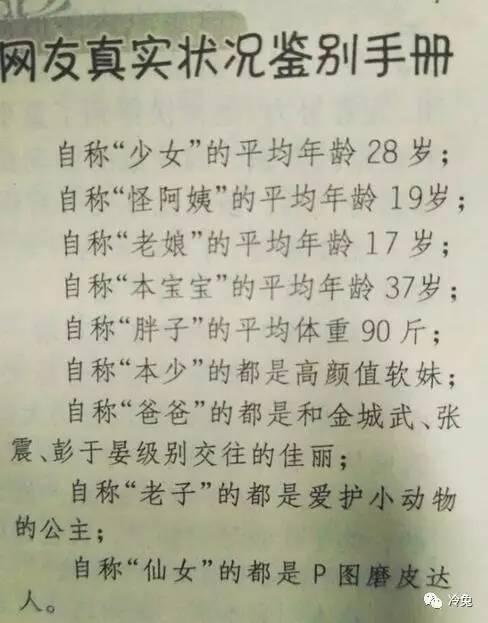 网友真实状况鉴别手册
自称“少女”的平均年龄 28 岁；
自称“怪阿姨”的平均年龄 19岁；
自称“老娘”的平均年龄 17 岁；
自称“本宝宝”的平均年龄 37岁；
自称“胖子”的平均体重 90 斤；
自称“本少”的都是高颜值软妹；
自称“爸爸”的都是和金城武、张
震、彭于晏级别交往的佳丽；
自称“老子”的都是爱护小动物
的公主；
自称“仙女”的都是 P 图磨皮达
人。
冷兔